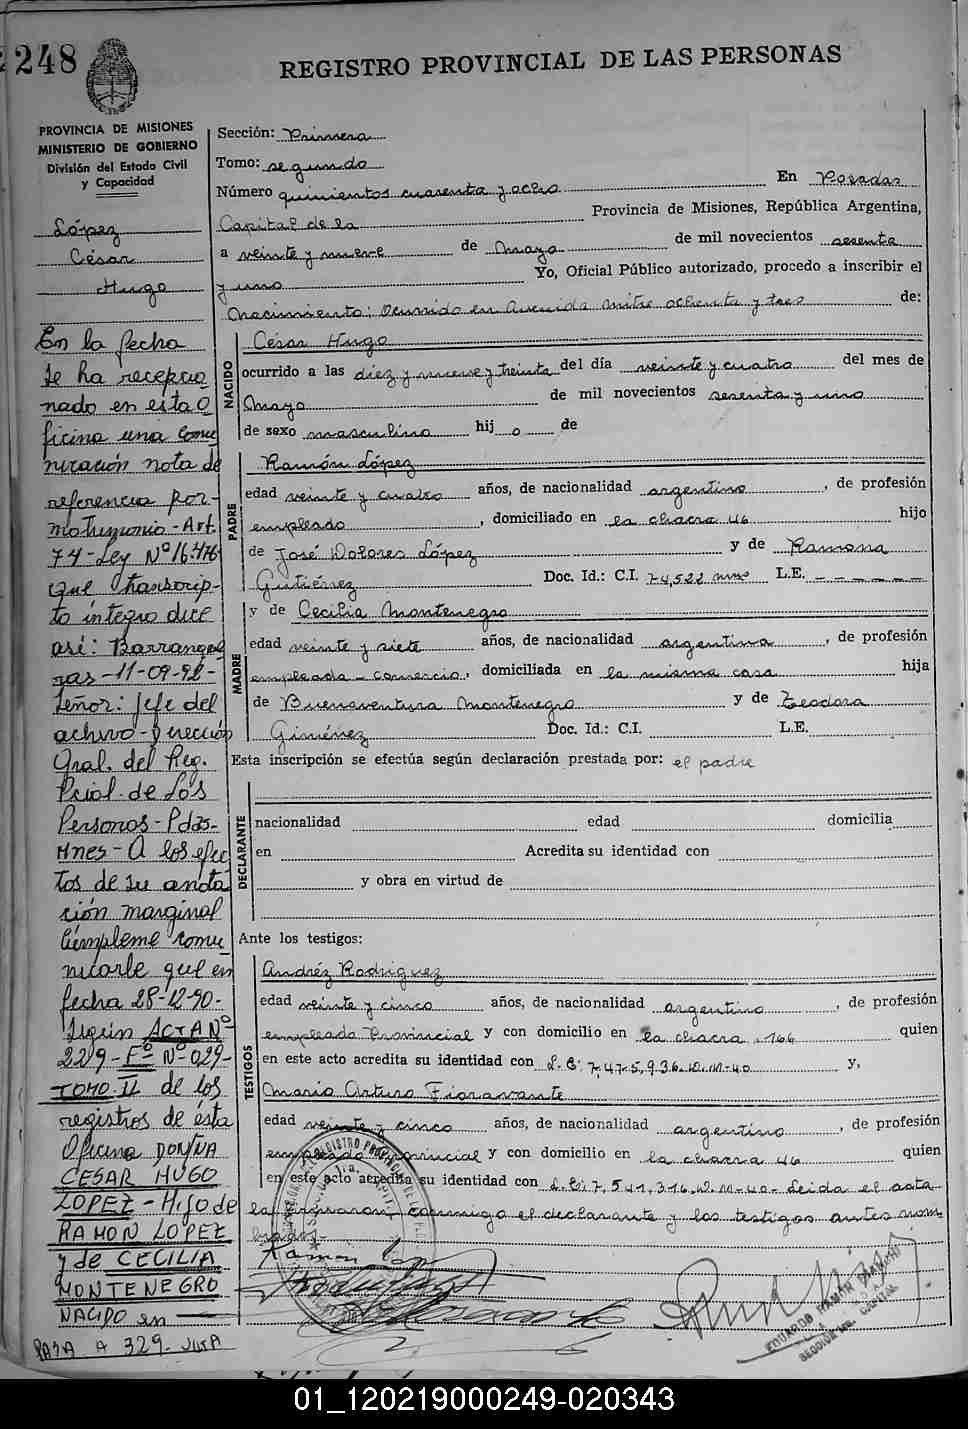 248
REGISTRO PROVINCIAL DE LAS PERSONAS
PROVINCIA DE MISIONES
MINISTERIO DE GOBIERNO
División del Estado Civil
y Capacidad
López
César
Hugo
En la fecha
se ha recepcio
nado en esta O
ficina una comu
nicación nota de
referencia por-
matrimonio-Art.
74-Ley Nº 16.
que transcrip-
to íntegro dice
así: Barranque
ras-11-09-92-
Señor: Jefe del
archivo-Dirección
Gral. del Reg.
Pcial. de Las
Personas-Pdas-
Mnes-A los efec
tos de su anota
ción marginal
Cúmpleme comu
nicarle que en
fecha 28-12-90-
Según ACTA Nº
229-Fº Nº-029-
TOMO-II de los
registros de ésta
Oficina DON/ÑA
CESAR HUGO
LOPEZ-Hijo de
RAMON LOPEZ
y de CECILIA
MONTENEGRO
NACIDO en
PASA A 329.
Sección: Primera
Tomo: segundo
Número quinientos cuarenta y ocho En Posadas
Capital de la Provincia de Misiones, República Argentina,
a veinte y nueve de Mayo de mil novecientos sesenta
y uno Yo, Oficial Público autorizado, procedo a inscribir el
Nacimiento: Ocurrido en Avenida Mitre ochenta y tres de:
NACIDO
César Hugo
ocurrido a las diez y nueve y treinta del día veinte y cuatro del mes de
Mayo de mil novecientos sesenta y uno
de sexo masculino hijo de
PADRE
Ramón López
edad veinte y cuatro años, de nacionalidad argentino, de profesión
empleado, domiciliado en la chacra 46 hijo
de José Dolores López y de Ramona
Gutiérrez Doc. Id.: C.I. 74,522 mnes L.E. - - - - - -
MADRE
y de Cecilia Montenegro
edad veinte y siete años, de nacionalidad argentina, de profesión
empleada-comercio, domiciliada en la misma casa hija
de Buenaventura Montenegro y de Teodora
Giménez Doc. Id.: C.I. L.E.
Esta inscripción se efectúa según declaración prestada por: el padre
DECLARANTE
nacionalidad edad domicilia
en Acredita su identidad con
y obra en virtud de
Ante los testigos:
TESTIGOS
Andréz Rodriguez
edad veinte y cinco años, de nacionalidad argentino, de profesión
empleado Provincial y con domicilio en la chacra 166 quien
en este acto acredita su identidad con L.E: 7,475,936.D.M-40 y,
Mario Arturo Fioravante
edad veinte y cinco años, de nacionalidad argentino, de profesión
empleado Provincial y con domicilio en la chacra 46 quien
en este acto acredita su identidad con L.E: 7,541,316.D.M-40-Leida el acta
la firmaron conmigo el declarante y los testigos antes nom
brados.
Ramon
01_120219000249-020343